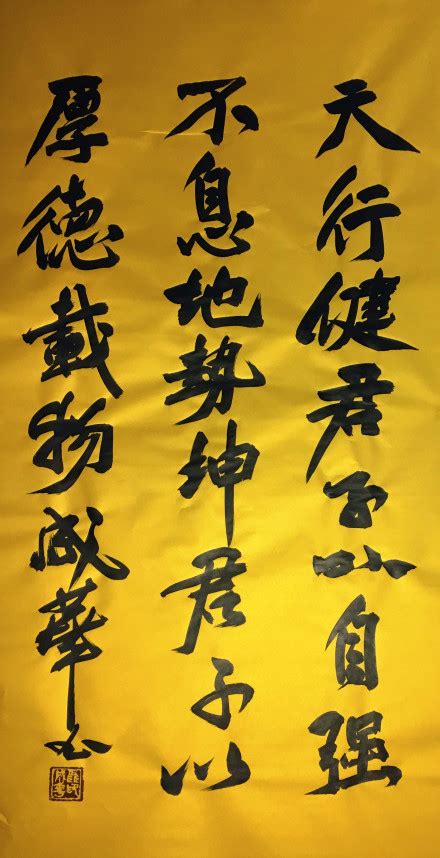 天行健君子以自强
不息地勢坤君子以
厚德載物成華书